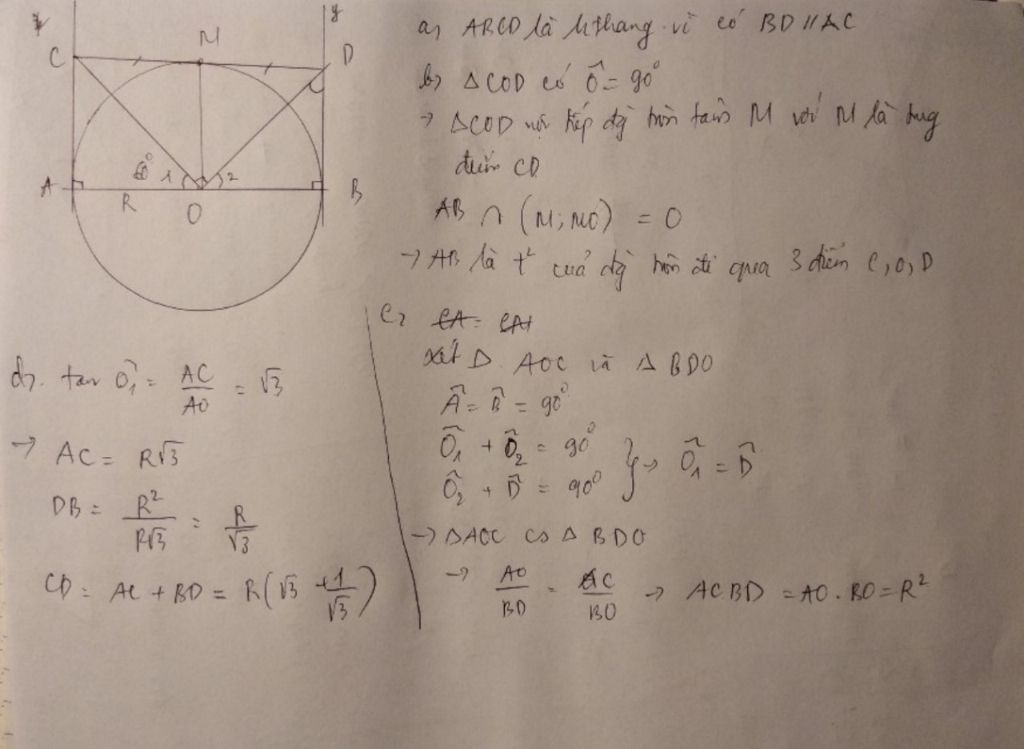 x
y
C
M
D
60° 1
2
A
B
R
O
a, ABCD là hthang vì có BD // AC
b, △COD có Ô = 90°
→ △COD nội tiếp đg tròn tâm M với M là trung
điểm CD
AB ∩ (M; MO) = O
→ AB là t² của đg tròn đi qua 3 điểm C, O, D
c, CA = CM
xét △ AOC và △ BDO
Â = B̂ = 90°
Ô₁ + Ô₂ = 90°
Ô₂ + D̂ = 90° } → Ô₁ = D̂
→ △AOC ∽ △BDO
→ AO/BD = AC/BO → AC BD = AO . BO = R²
d, tan Ô₁ = AC/AO = √3
→ AC = R√3
DB = R²/R√3 = R/√3
CD = AC + BD = R(√3 + 1/√3)